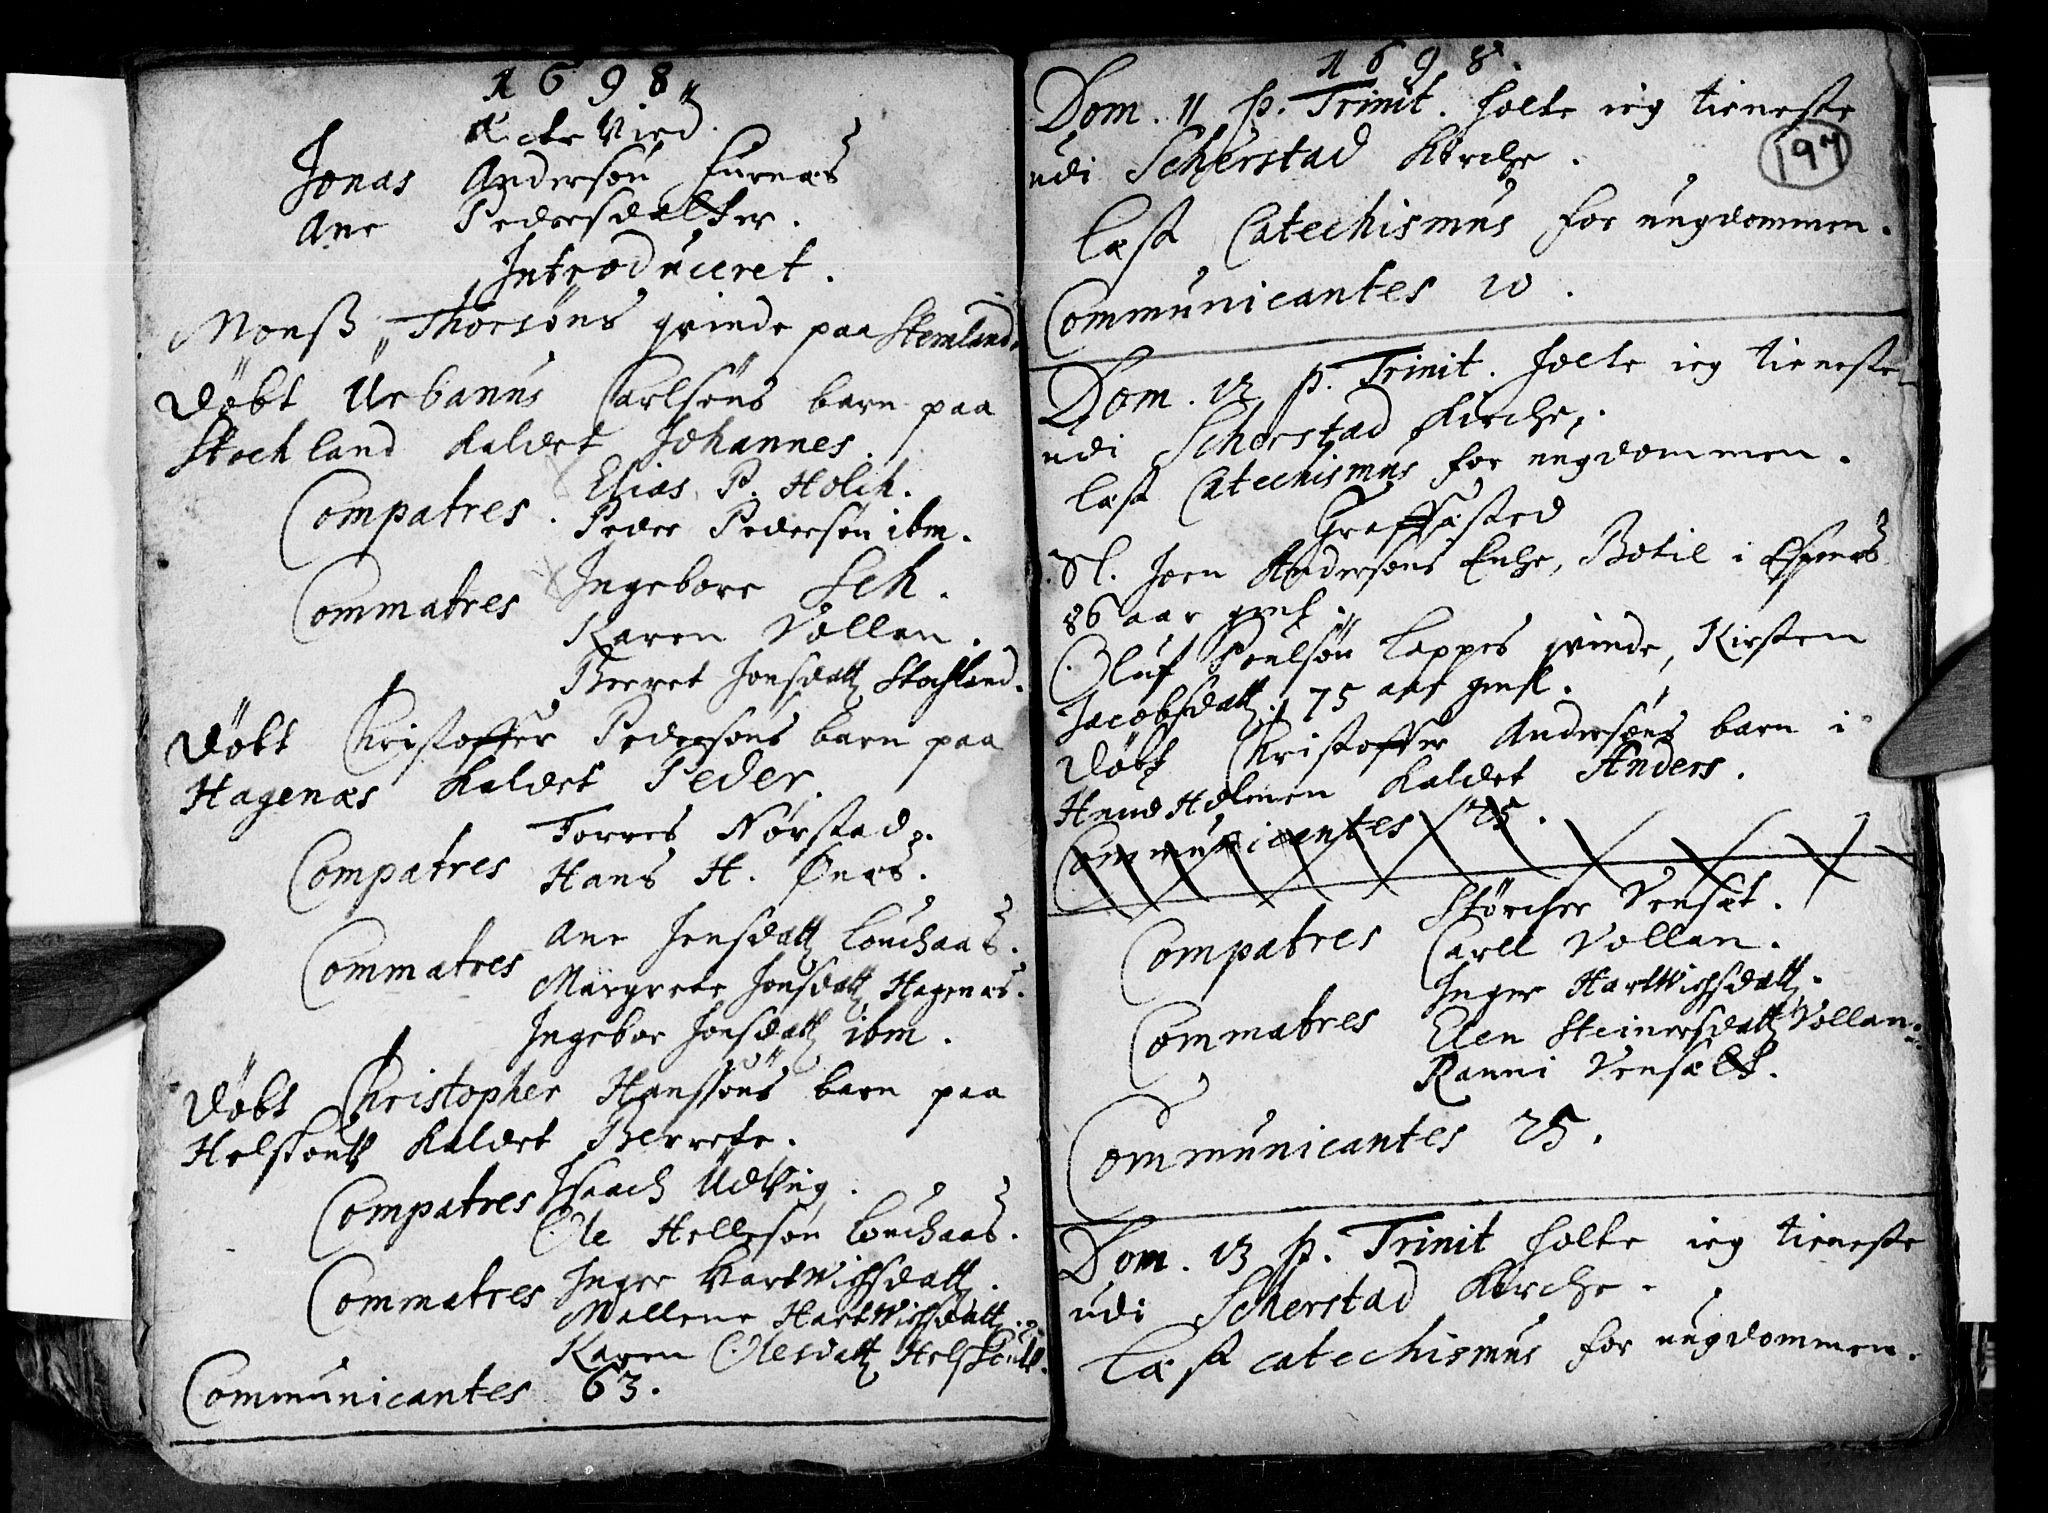 1698
Ecte Vied.
Jonas Andersøn Furnæs
Ane Pedersdaltter.
Introduceret.
Monsß Thorsøns qvinde paa Stemland.
Døbt Urbanus Carlsøns barn paa
Stochland kaldet Johannes.
Compatres. Elias P. Holch.
Peder Pedersøn ibm.
Commatres Ingebore Sch.
Karen Vollan.
Berret Jonsdatt Stochland.
Døbt Christoffer Pedersøns barn paa
Hagenæs kaldet Peder.
Compatres Torres Nørstad.
Hans H. Ønæs.
Commatres Ane Jensdatt Louchaas.
Margrete Jonsdatt Hagenæs.
Ingebor Jonsdatt ibm.
Døbt Christopher Hanssøns barn paa
Helskoutt kaldet Berrete.
Compatres Isaach Udvig.
Ole Hellesøn Louchaas.
Commatres Inger Hartwichsdatt.
Mallene Hartwichsdatt.
Karen Olesdatt Helskoutt.
Communicantes 63.
1698.
197
Dom. 11 p. Trinit. holte ieg tieneste
udi Scherstad Kirche.
læst Catechismus for ungdommen.
Communicantes 10.
Dom. 12 p. Trinit. holte ieg tieneste
udi Scherstad Kirche.
læst Catechismus for ungdommen.
Graffæsted
Sl. Joen Andersøns Enche, Botil i Espenæs
86 aar gml.
Oluf Poulsøn Lappes qvinde, Kirsten
Jacobsdatt. 75 aar gml.
Døbt Christoffer Andersøns barn i
Hund Holmen kaldet Anders.
Communicantes 25.
Compatres Størcher Vensæt.
Carll Vollan.
Inger Hartwichsdatt.
Commatres Elen Steinersdatt Vollan
Ranni Vensælt.
Communicantes 25.
Dom. 13 p. Trinit holte ieg tieneste
udi Scherstad Kirche.
læst catechismus for ungdommen.